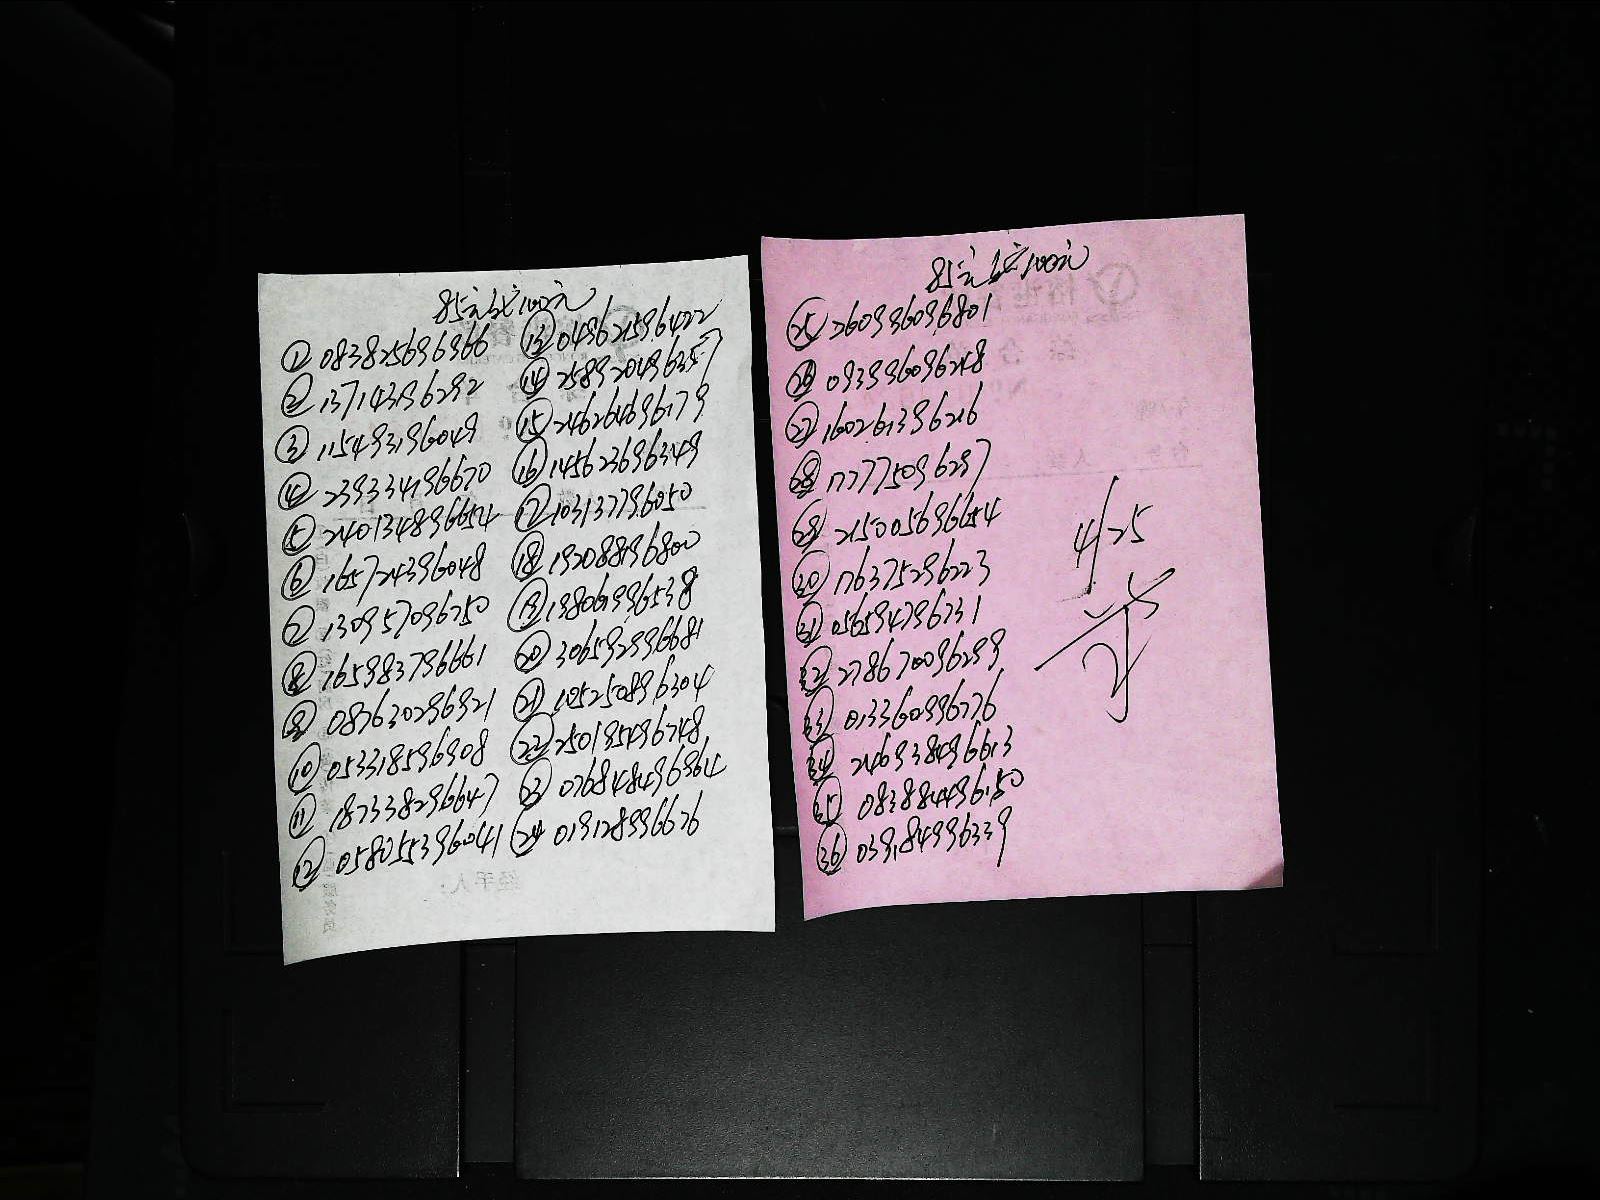 85元代100元
① 083825696966
② 137143196292
③ 115493196049
④ 239334196670
⑤ 240134896654
⑥ 165724396048
⑦ 130957096750
⑧ 165983796661
⑨ 087630296921
⑩ 053318596908
⑪ 187338296647
⑫ 058055396041
⑬ 049621596422
⑭ 258920496357
⑮ 246264696179
⑯ 145623696349
⑰ 103137796050
⑱ 192088196800
⑲ 198061996538
⑳ 306592996681
㉑ 105250896304
㉒ 250195496748
㉓ 076848496964
㉔ 019128996676
85元代100元
㉕ 260996096801
㉖ 093996096248
㉗ 160261396216
㉘ 177775096297
㉙ 215005696654
㉚ 176375296223
㉛ 056594796731
㉜ 278670096299
㉝ 013360996776
㉞ 246938496613
㉟ 083884496150
㊱ 039184996339
4/25
经手人: